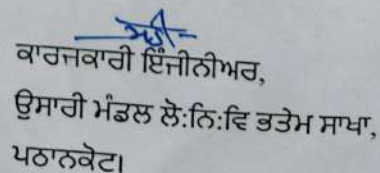 ਸਹੀ/-
ਕਾਰਜਕਾਰੀ ਇੰਜੀਨੀਅਰ,
ਉਸਾਰੀ ਮੰਡਲ ਲੋ:ਨਿ:ਵਿ ਭਤੇਮ ਸਾਖਾ,
ਪਠਾਨਕੋਟ।